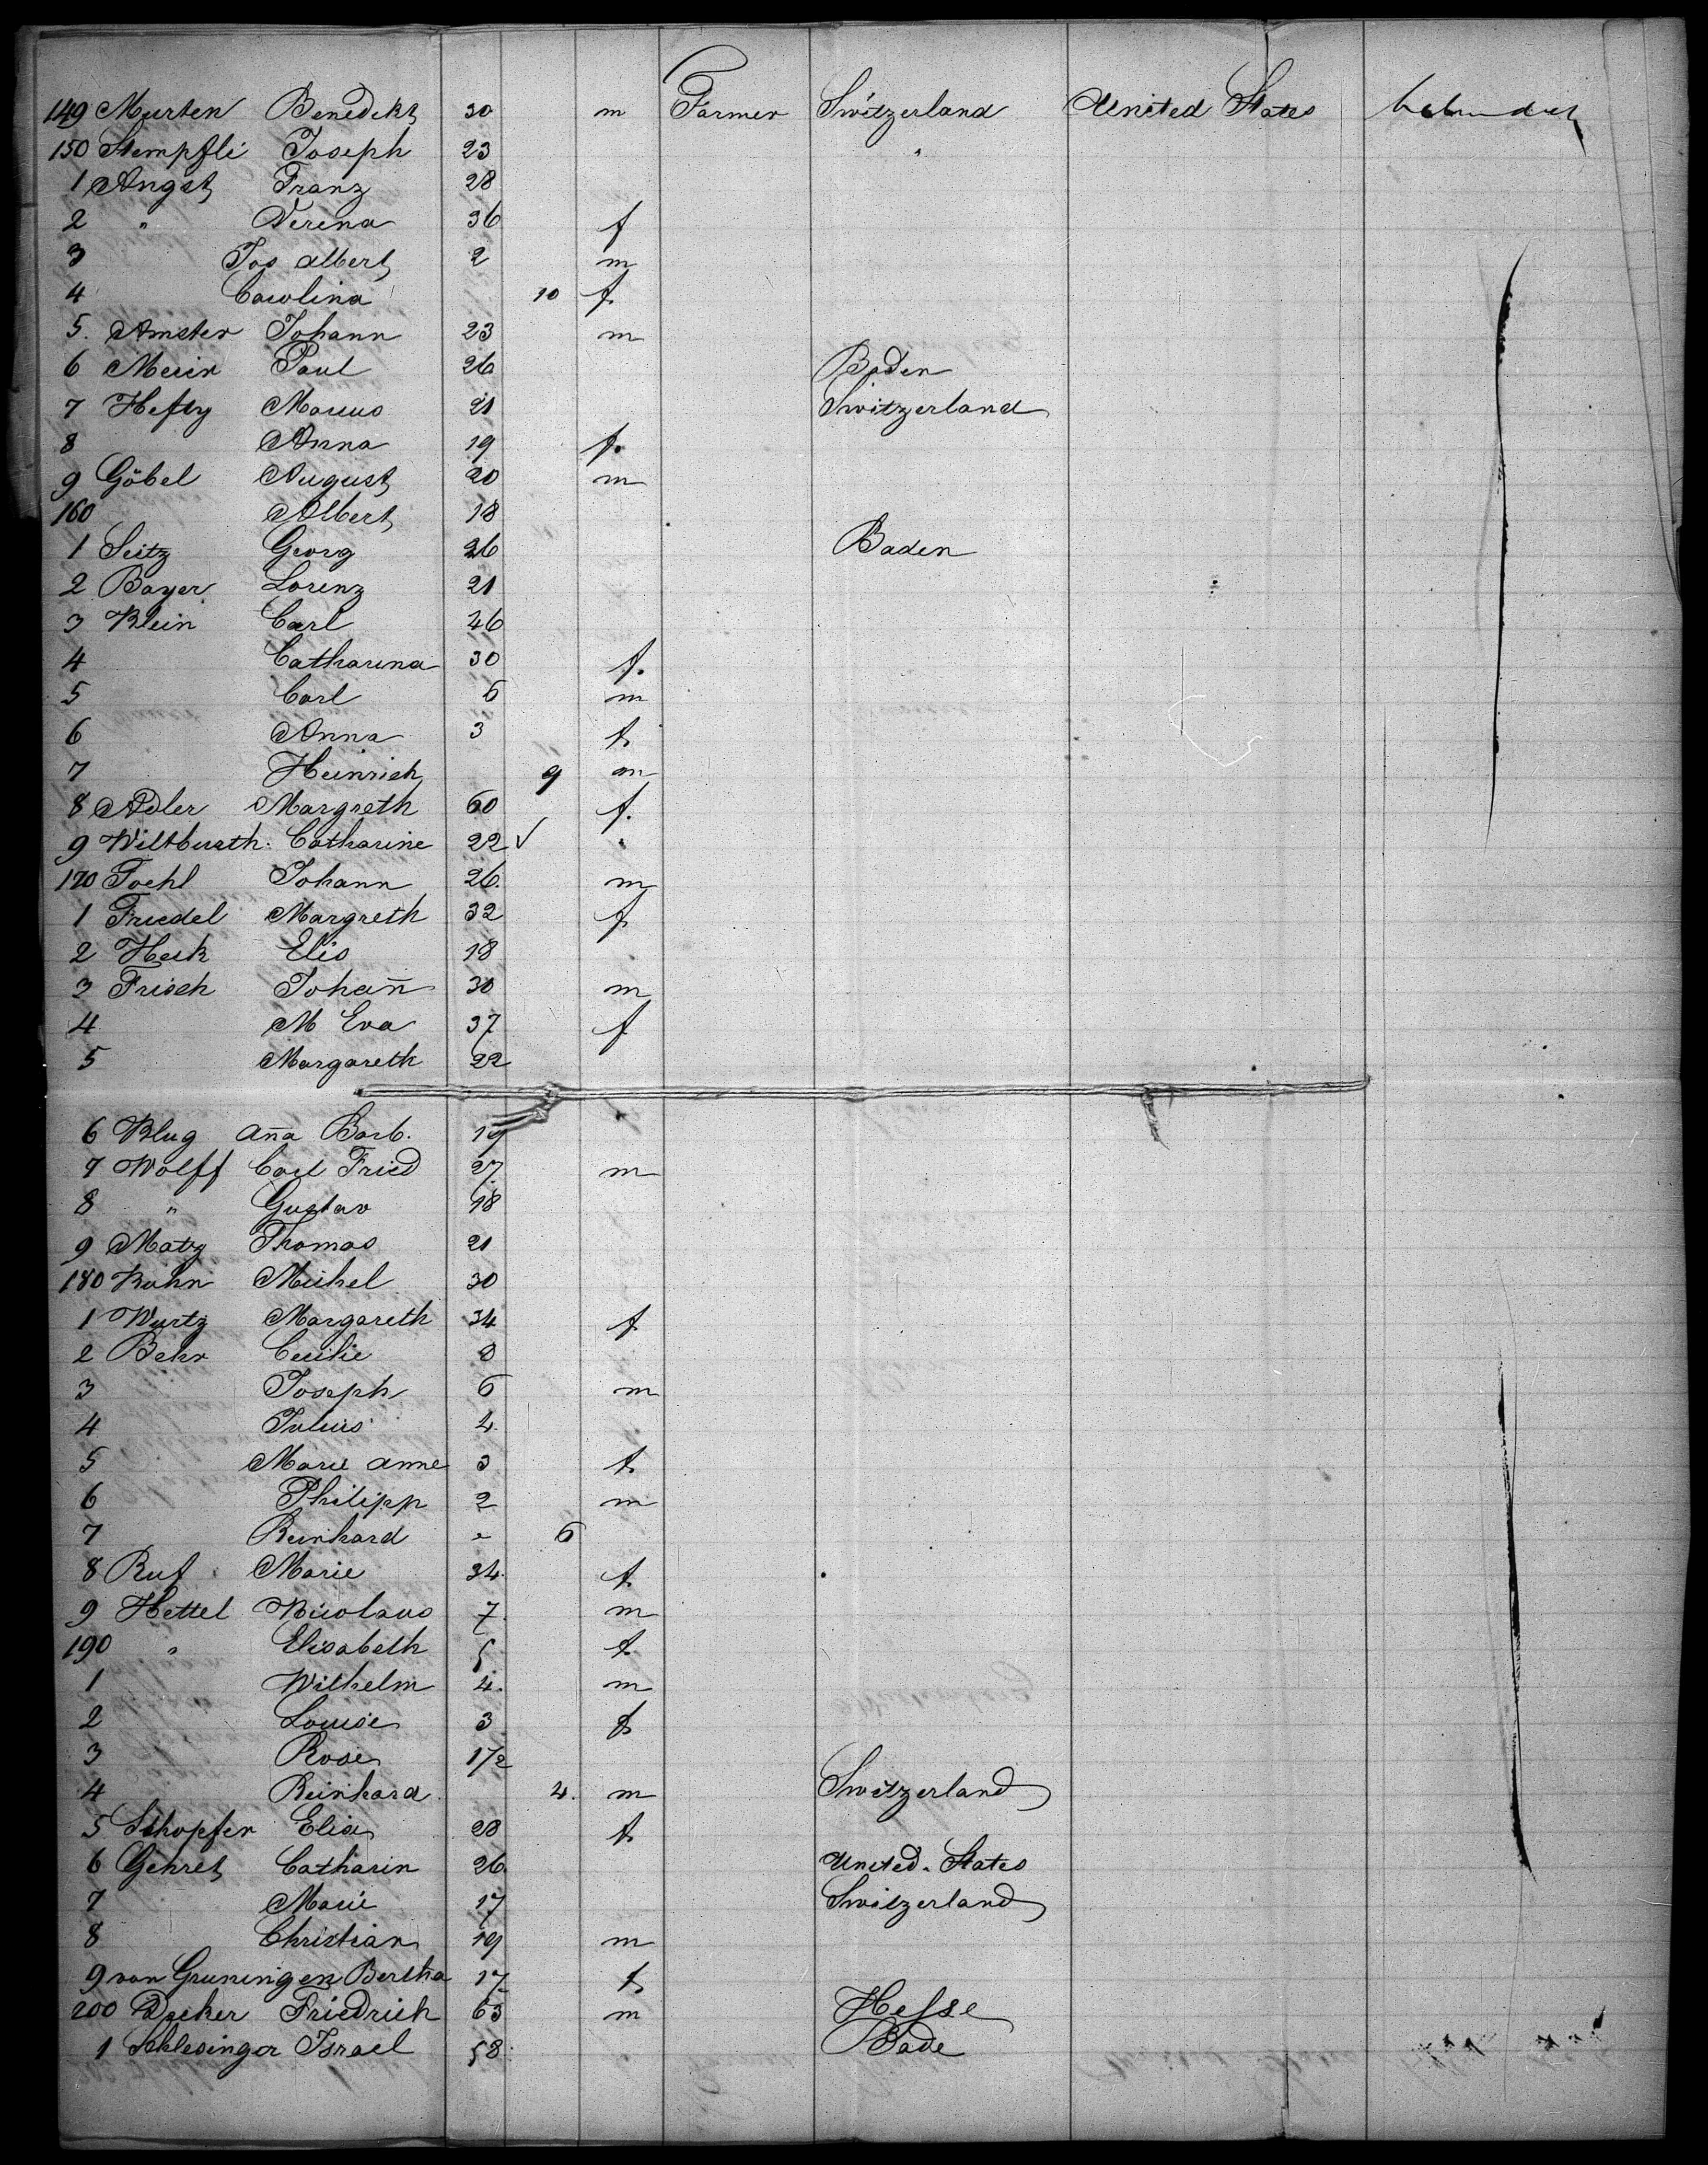 149 Murten Benedikt 30 m Farmer Switzerland United States
150 Stempfli Joseph 23 "
1 Angst Franz 28
2 " Verena 36 f
3 Jos Albert 2 m
4 Carolina 10 f.
5. Amsler Johann 23 m
6 Meier Paul 26 Baden
7 Hefty Marcus 21 Switzerland
8 Anna 19 f.
9 Göbel August 20 m
160 Albert 18
1 Seitz Georg 26 Baden
2 Bayer Lorenz 21
3 Klein Carl 46
4 Catharina 30 f.
5 Carl 6 m
6 Anna 3 f.
7 Heinrich 9 m
8 Adler Margreth 60 f.
9 Catharine 22 ✓ "
170 Johann 26. m
1 Friedel Margreth 32 f.
2 Heck Elis 18
3 Frisch Johan̄ 30 m
4 M Eva 37 f
5 Margareth 22
6 Klug An̄a Barb. 19
7 Wolff Carl Fried 27 m
8 " Gustav 18
9 Matz Thomas 21
180 Kuhn Michel 30
1 Wurtz Margareth 34 f.
2 Behr Cecilie 8
3 Joseph 6 m
4 Julius 4.
5 Marie Anne 3 f.
6 Philipp 2 m
7 Reinhard - 6
8 Ruf Marie 34. f.
9 Hettel Nicolaus 7. m
190 " Elisabeth 5 f.
1 Wilhelm 4. m
2 Louise 3 f.
3 Rose 1/2
4 Reinhard 4. m Switzerland
5 Schopfer Elise 28 f.
6 Gehret Catharin 26. United States
7 Marie 17 Switzerland
8 Christian 19 m
9 von Gruningen Bertha 17 f.
200 Decker Friedrich 63 m Hesse
1 Schlesinger Israel 58 Bade